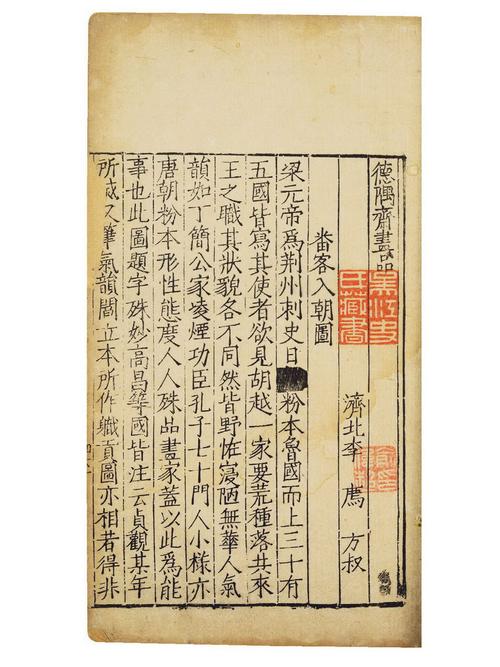 德隅齋畫品
吳江史
氏藏書
濟北李廌方叔
番客入朝圖
梁元帝爲荆州刺史日粉本魯國而上三十有
五國皆寫其使者欲見胡越一家要荒種落共來
王之職其狀貌各不同然皆野怪寢陋無華人氣
韻如丁簡公家凌煙功臣孔子七十門人小樣亦
唐朝粉本形性態度人人殊品畫家蓋以此爲能
事也此圖題字殊妙高昌等國皆注云貞觀某年
所烕又筆氣韻閻立本所作職貢圖亦相若得非